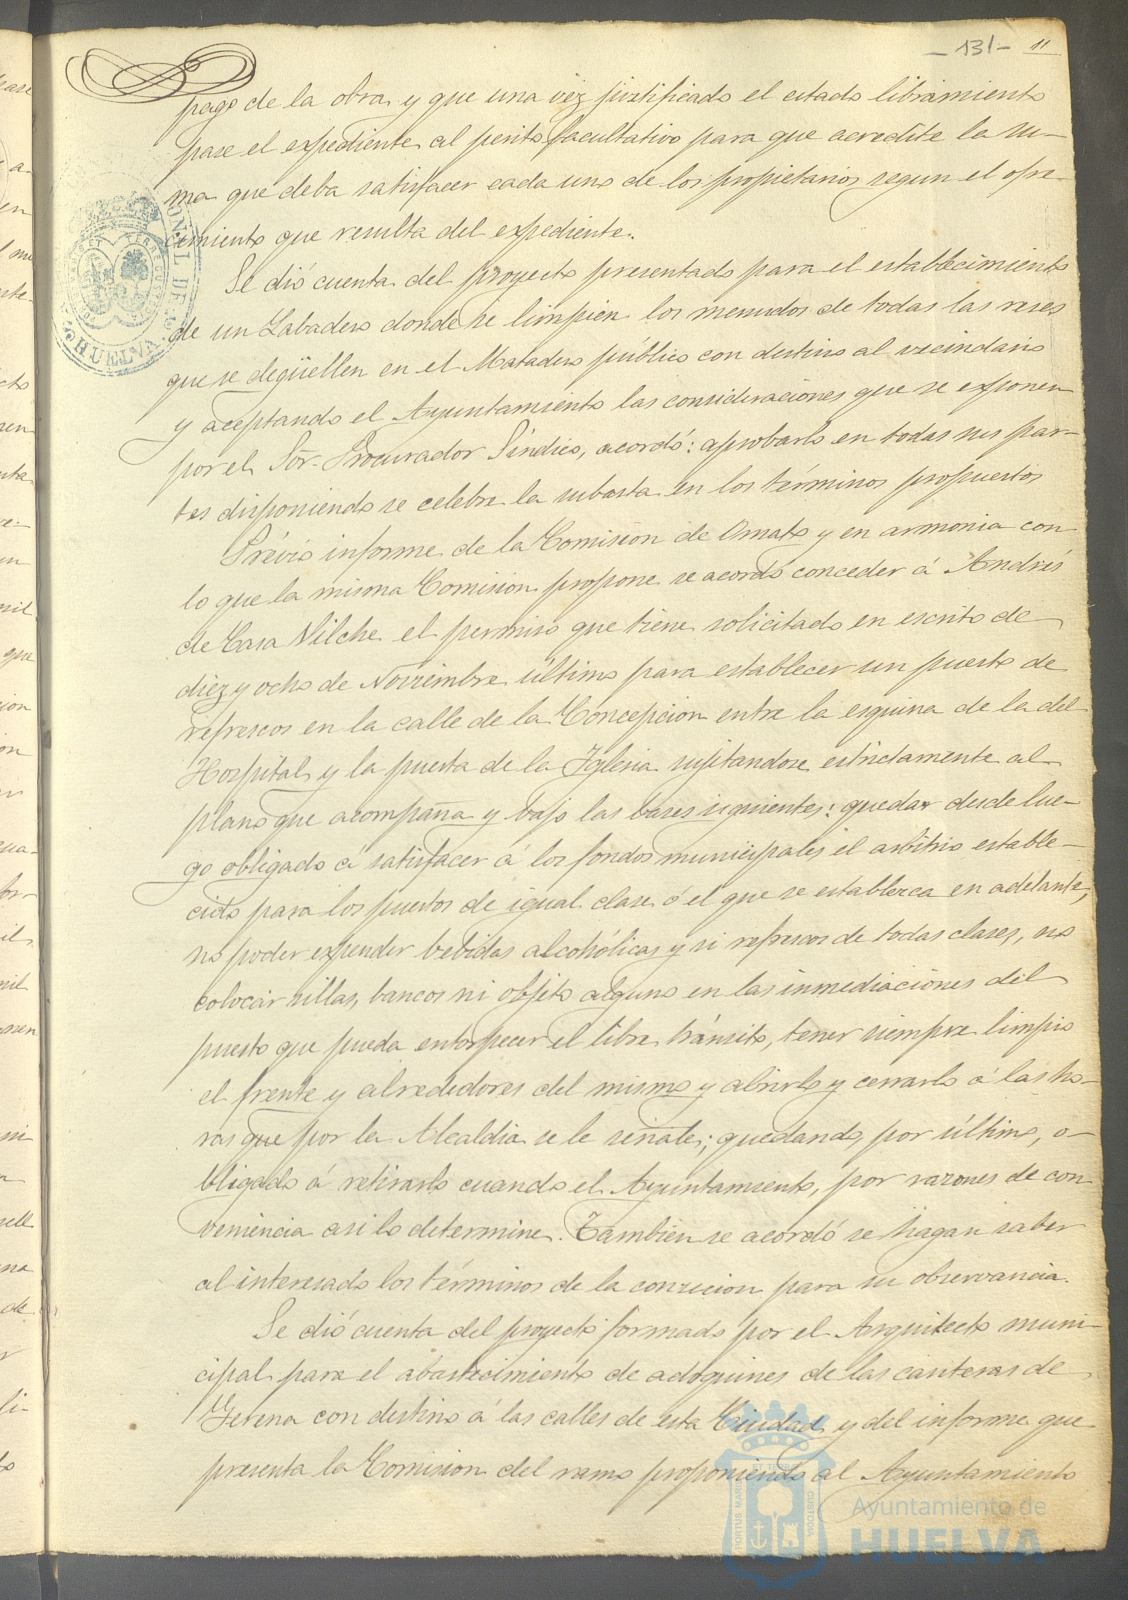 - 131 - 11
pago de la obra y que una vez justificado el citado libramiento
pase el expediente al perito facultativo para que acredite la su-
ma que deba satisfacer cada uno de los propietarios segun el ofre-
cimiento que resulta del expediente.
Se dió cuenta del proyecto presentado para el establecimiento
de un Labadero donde se limpien los menudos de todas las reses
que se degüellen en el Matadero público con destino al vecindario
y aceptando el Ayuntamiento las consideraciones que se exponen
por el Sor. Procurador Síndico, acordó: aprobarlo en todas sus par-
tes disponiendo se celebre la subasta en los términos propuestos
Prévio informe de la Comision de Ornato y en armonia con
lo que la misma Comision propone se acordó conceder á Andrés
de Casa Vilche el permiso que tiene solicitado en escrito de
diez y ocho de Noviembre último para establecer un puesto de
refrescos en la calle de la Concepcion entre la esquina de la del
Hospital y la puerta de la Iglesia sujetandose estrictamente al
plano que acompaña y bajo las bases siguientes: quedar desde lue-
go obligado á satisfacer á los fondos municipales el arbitrio estable-
cido para los puestos de igual clase ó el que se establezca en adelante,
no poder expender bebidas alcohólicas y si refrescos de todas clases, no
colocar sillas, bancos ni objeto alguno en las inmediaciones del
puesto que pueda entorpecer el libre tránsito, tener siempre limpio
el frente y alrededores del mismo y abrirlo y cerrarlo á las ho-
ras que por la Alcaldia se le señale; quedando, por último, o-
bligado á retirarlo cuando el Ayuntamiento, por razones de con-
veniencia asi lo determine. Tambien se acordó se hagan saber
al interesado los términos de la concesion para su observancia.
Se dió cuenta del proyecto formado por el Arquitecto muni-
cipal para el abastecimiento de adoquines de las canteras de
Gerena con destino á las calles de esta Ciudad y del informe que
presenta la Comision del ramo proponiendo al Ayuntamiento
HUELVA
Ayuntamiento de
HUELVA